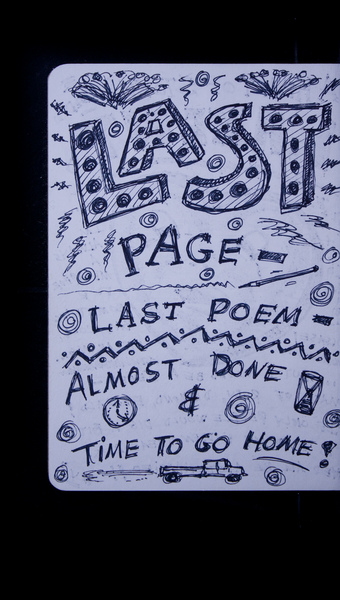 LAST
PAGE
LAST POEM
ALMOST DONE
&
TIME TO GO HOME!